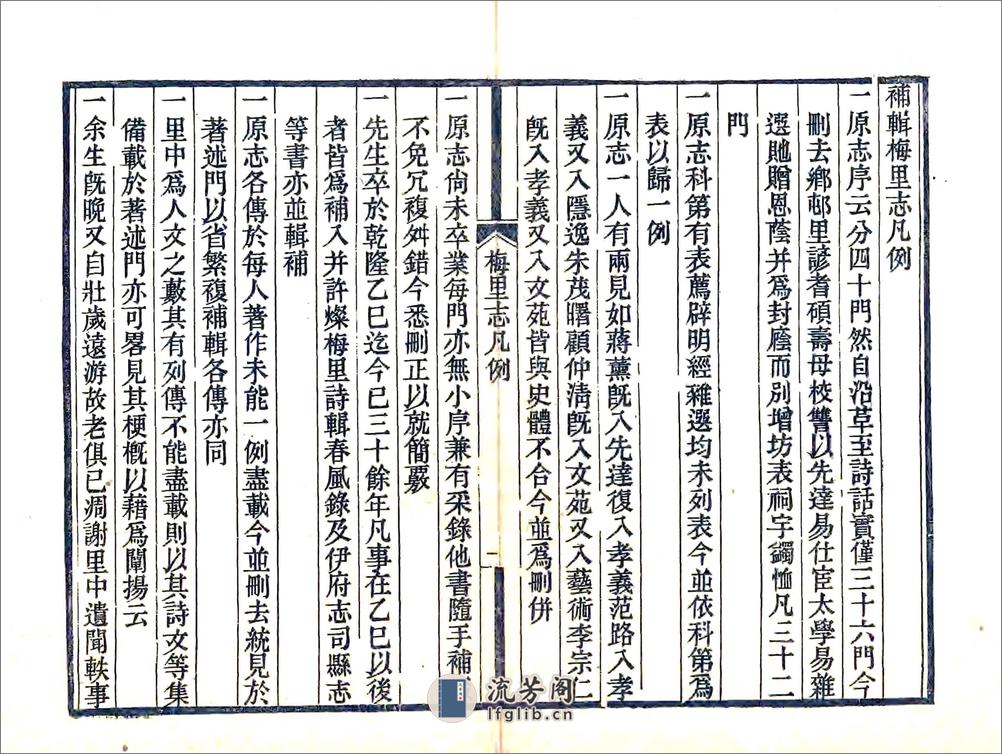 補輯梅里志凡例
一原志序云分四十門然自沿革至詩話實僅三十六門今
刪去鄉邨里諺耆碩壽母校讐以先達易仕宦太學易雜
選貤贈恩蔭并爲封廕而別增坊表祠宇蠲恤凡三十二
門
一原志科第有表薦辟明經雜選均未列表今並依科第爲
表以歸一例
一原志一人有兩見如蔣薰旣入先達復入孝義范路入孝
義又入隱逸朱茂曙顧仲淸旣入文苑又入藝術李宗仁
旣入孝義又入文苑皆與史體不合今並爲刪併
梅里志凡例
一
一原志尙未卒業每門亦無小序兼有采錄他書隨手補
不免冗複舛錯今悉刪正以就簡覈
一先生卒於乾隆乙巳迄今已三十餘年凡事在乙巳以後
者皆爲補入并許燦梅里詩輯春風錄及伊府志司縣志
等書亦並輯補
一原志各傳於每人著作未能一例盡載今並刪去統見於
著述門以省繁複補輯各傳亦同
一里中爲人文之藪其有列傳不能盡載則以其詩文等集
備載於著述門亦可畧見其梗槪以藉爲闡揚云
一余生旣晚又自壯歲遠游故老俱已凋謝里中遺聞軼事
流芳阁
lfglib.cn